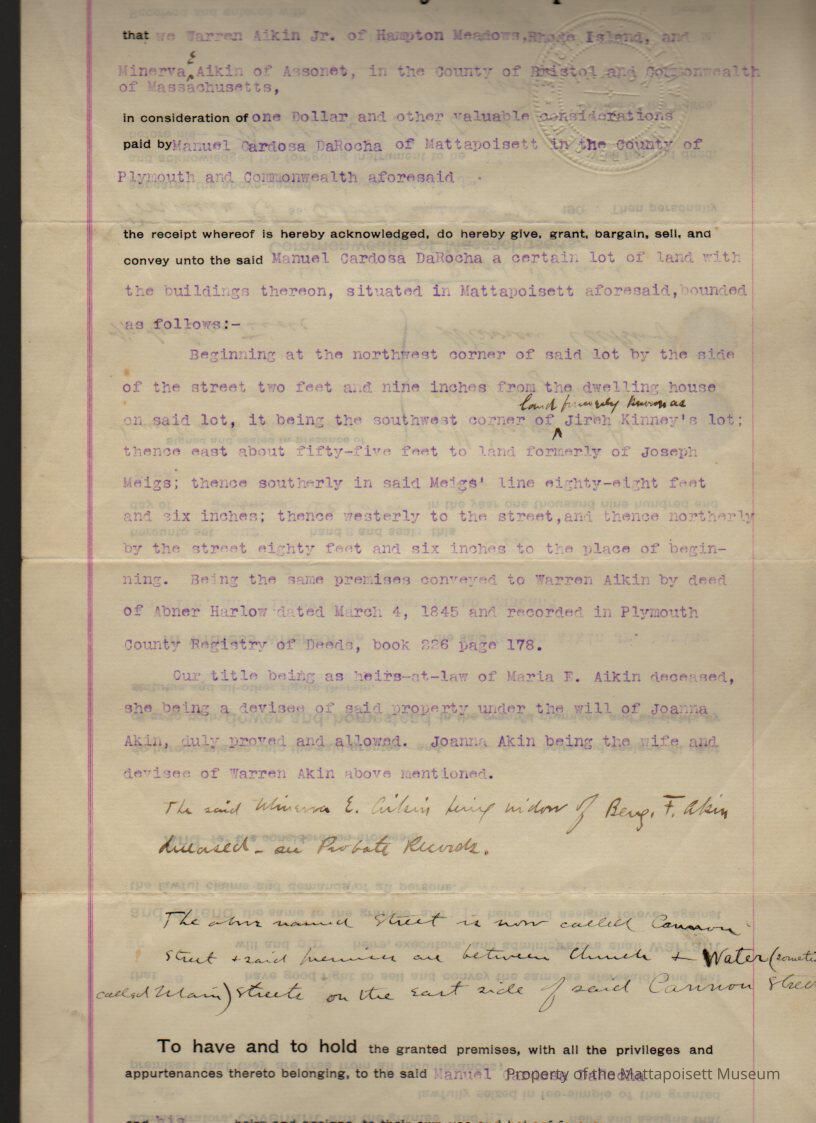 that we Warren Aikin Jr. of Hampton Meadows,Rhode Island, and
E
Minerva Aikin of Assonet, in the County of Bristol and Commonwealth
of Massachusetts,
in consideration of one Dollar and other valuable considerations
paid by Manuel Cardosa DaRocha of Mattapoisett in the County of
Plymouth and Commonwealth aforesaid
the receipt whereof is hereby acknowledged, do hereby give, grant, bargain, sell, and
convey unto the said Manuel Cardosa DaRocha a certain lot of land with
the buildings thereon, situated in Mattapoisett aforesaid,bounded
as follows:-
Beginning at the northwest corner of said lot by the side
of the street two feet and nine inches from the dwelling house
land formerly known as
on said lot, it being the southwest corner of Jireh Kinney's lot;
thence east about fifty-five feet to land formerly of Joseph
Meigs; thence southerly in said Meigs' line eighty-eight feet
and six inches; thence westerly to the street,and thence northerly
by the street eighty feet and six inches to the place of begin-
ning. Being the same premises conveyed to Warren Aikin by deed
of Abner Harlow dated March 4, 1845 and recorded in Plymouth
County Registry of Deeds, book 226 page 178.
Our title being as heirs-at-law of Maria E. Aikin deceased,
she being a devisee of said property under the will of Joanna
Akin, duly proved and allowed. Joanna Akin being the wife and
devisee of Warren Akin above mentioned.
The said Minerva E. Aikin being widow of Benj. F. Akin
deceased - see Probate Records.
The above named Street is now called Cannon
Street + said premises are between Church + Water (
called Main) Streets on the East side of said Cannon Street
To have and to hold the granted premises, with all the privileges and
appurtenances thereto belonging, to the said Manuel Cardosa DaRocha
Property of the Mattapoisett Museum